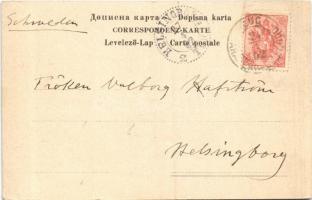 Дописна карта — Dopisna karta
Schweden
CORRESPONDENZ-KARTE
Levelező-Lap — Carte postale
Fröken Valborg Hafström
Helsingborg